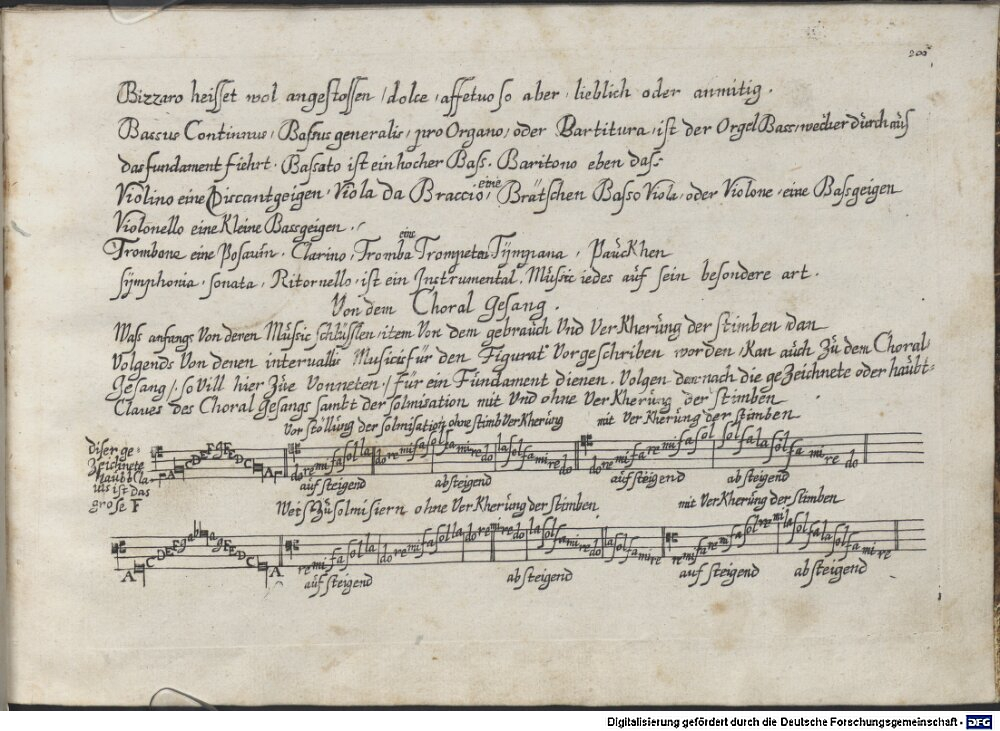 200
Bizzaro heisset wol angestossen / dolce, affetuoso aber, lieblich oder anmitig.
Bassus Continnus, Bassus generalis, pro Organo, oder Bartitura, ist der Orgel Bass, welcher durch aus
das fundament fiehrt. Bassato ist ein hocher Bass. Baritono eben das:
Violino eine Discantgeigen, Viola da Braccio, eine Brätschen Basso Viola, oder Violone, eine Bassgeigen
Violonello eine Kleine Bassgeigen.
Trombone eine Posaun. Clarino, Tromba eine Trompeten Tÿmpana, Pauckhen
Sÿmphonia, Sonata, Ritornello, ist ein Instrumental Music iedes auf sein besondere art.
Von dem Choral Gesang.
Wass anfangs Von deren Music schlüsslen, item Von dem gebrauch Und VerKherung der stimben, dan
Volgends Von denen intervallis Musicis für den Figurat Vorgeschriben worden, Kan auch Zu dem Choral
Gesang, so Vill hier Zue Vonneten, für ein Fundament dienen. Volgen demnach die geZeichnete oder haubt-
Claves des Choral Gesangs sambt der solmisation mit Und ohne VerKherung der stimben
Vorstöllung der solmisation ohne stimbVerKherung mit VerKherung der stimben
Diser ge-
Zeichnete
haubt Cla-
vis ist das
grose F
F A C D E F G F E D C A F do re mi fa sol la do re mi fa sol fa mi re do la sol fa mi re do do re mi fa re mi fa sol sol fa la sol fa mi re do
auf steigend ab steigend auf steigend ab steigend
Weis Zu solmisiern ohne VerKherung der stimben mit VerKherung der stimben
A C D E F g a b a g F E D C A re mi fa sol la do re mi fa sol la do re mi re do la sol fa mi re do la sol fa mi re re mi fa re mi fa sol re mi la sol fa la sol fa mi re
auf steigend ab steigend auf steigend ab steigend
Digitalisierung gefördert durch die Deutsche Forschungsgemeinschaft - DFG